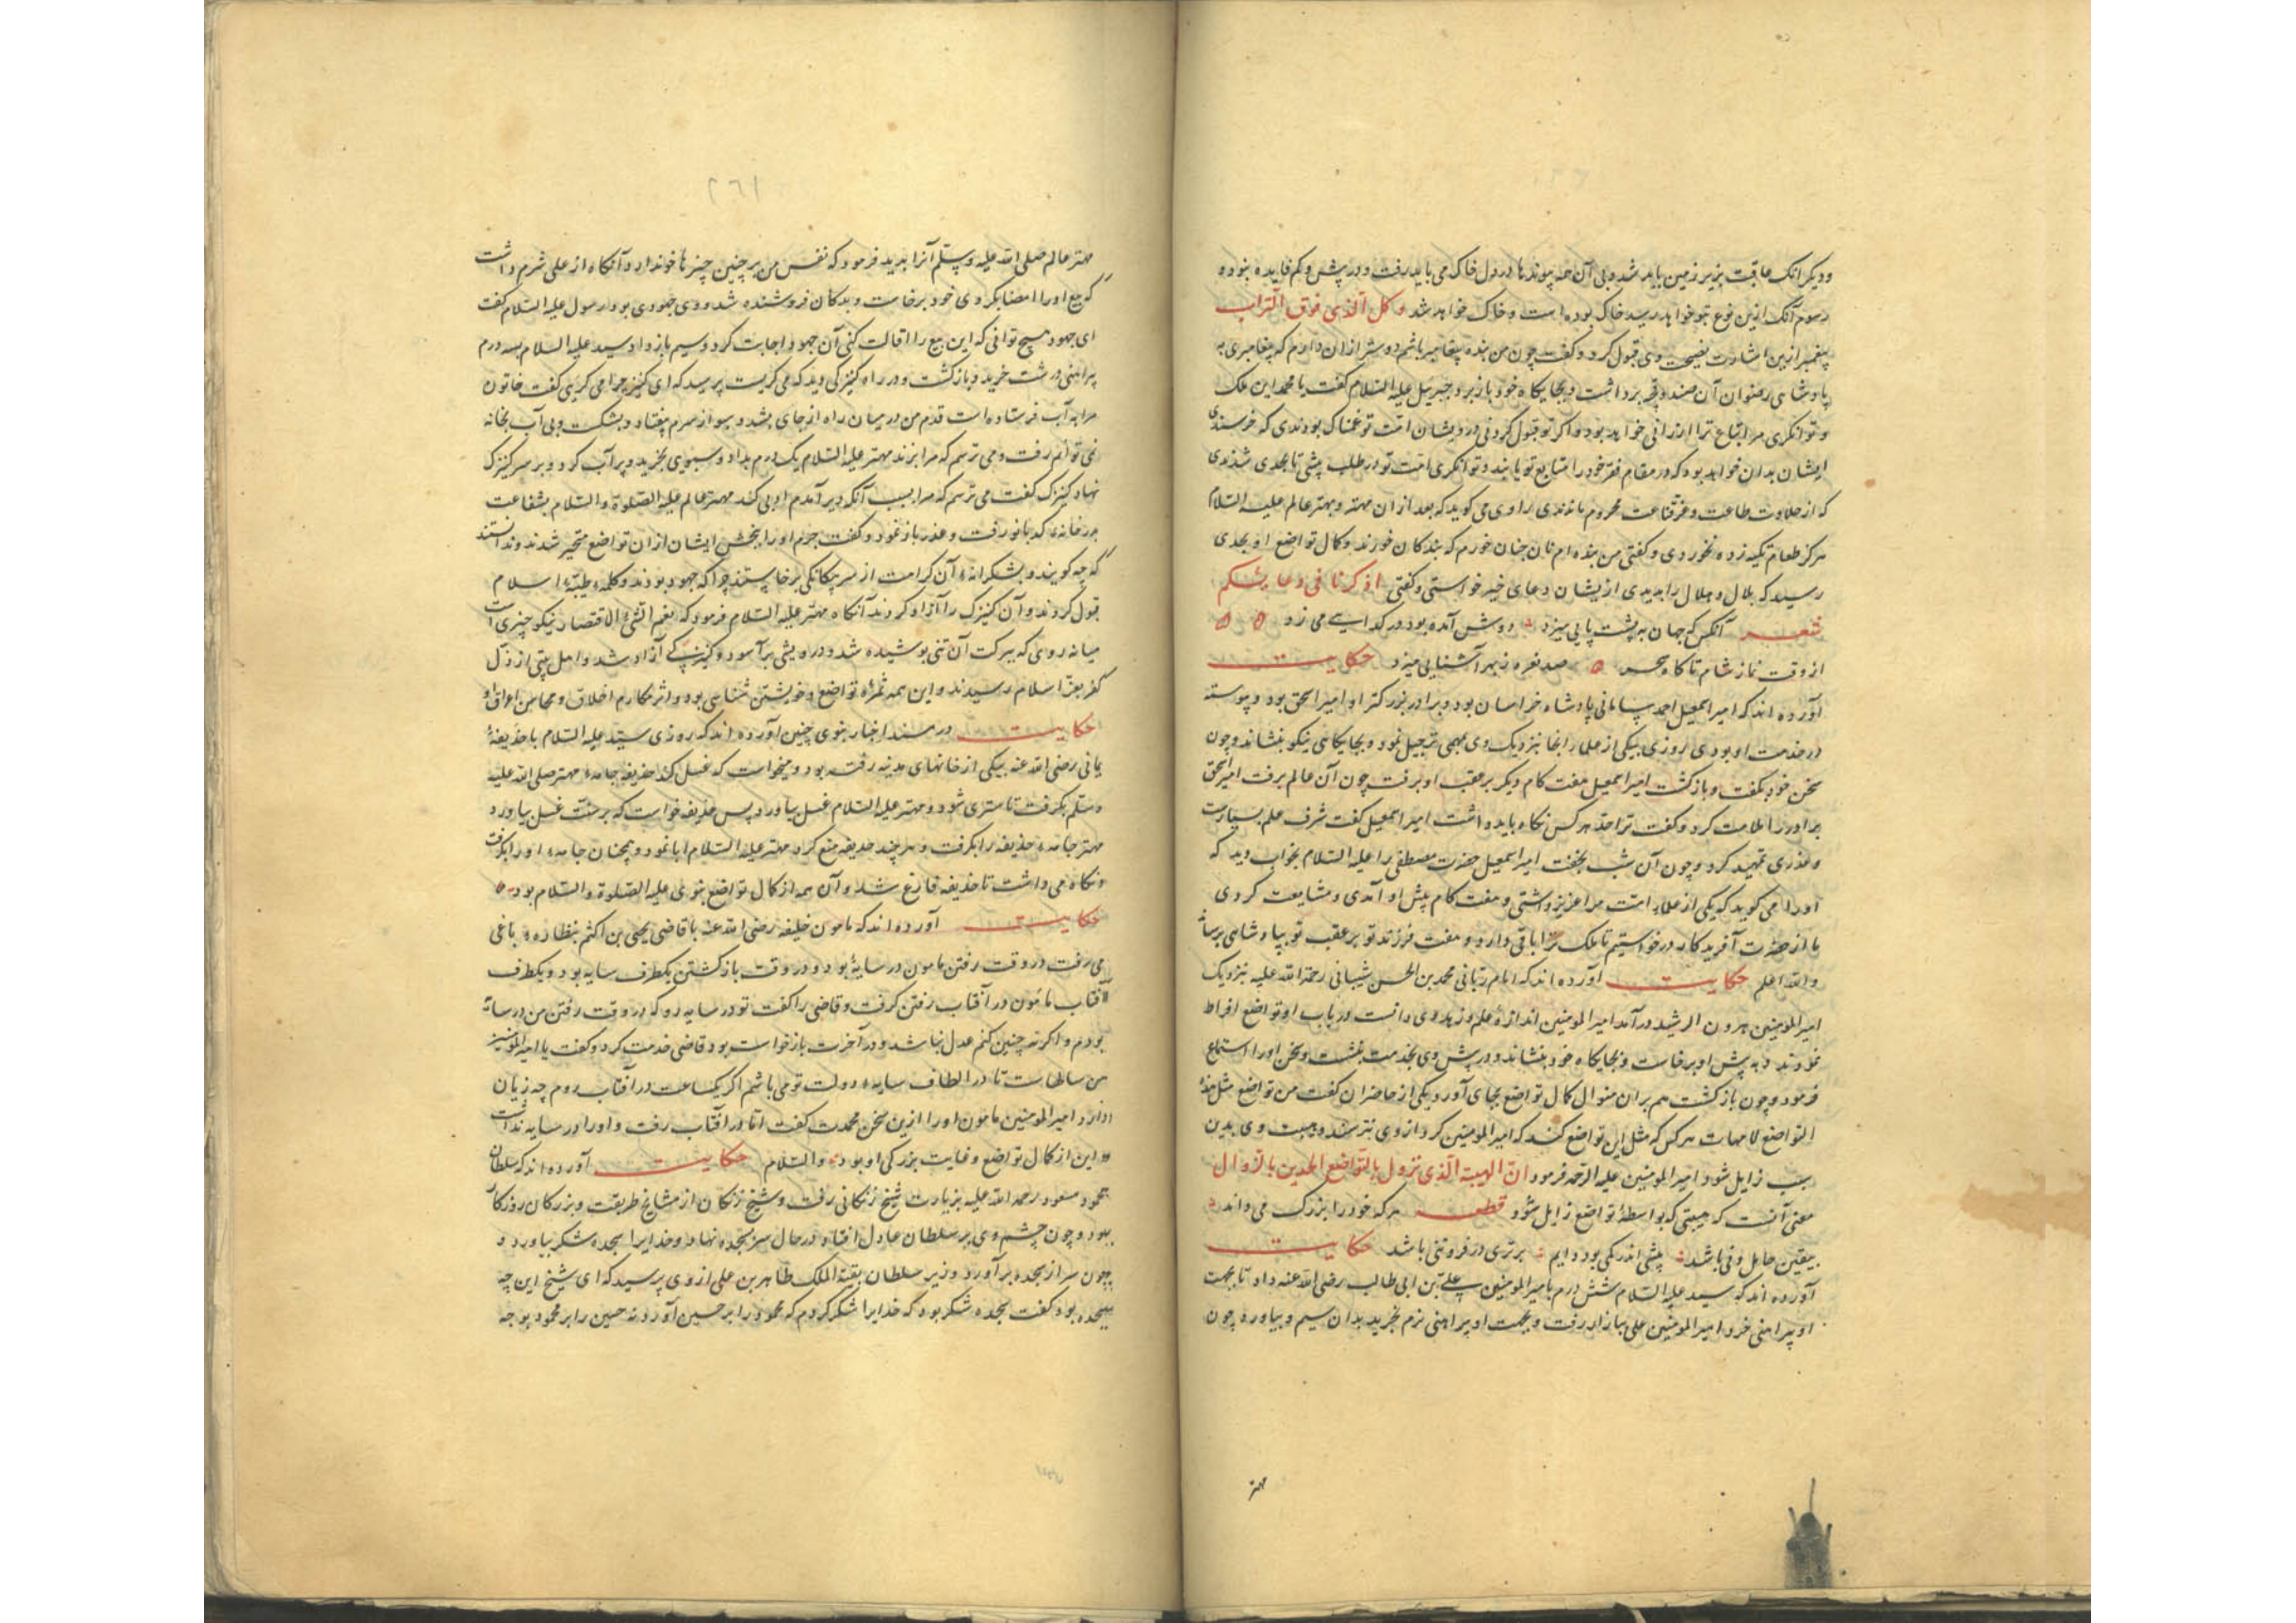 ودیکر آنک عاقبت بزیر زمین باید شد وبی آن همه پیوندها در دل خاک می باید رفت و در پیش وکم فایده نبود و
رسوم آنک ازین نوع بتو خواهد رسید خاک بوده است و خاک خواهد شد و کل الذی فوق التراب
پیغمبر ازین اشارت نصیحت وی قبول کرد و کفت چون من بنده پیغامبر باشم دوستر از ان دارم که پیغامبری به
پادشاهی رضوان آن صندوقچه برداشت و بجایکاه خود باز برد جبرییل علیه السلام کفت یا محمد این ملک
و توانکری مر اتباع ترا ارزانی خواهد بود و اکر تو قبول کردنی درویشان امت تو غمناک بودندی که خرسندی
ایشان بدان خواهد بود که در مقام فقر خود را متابع تو یابند و توانکری امت تو در طلب پیشی تا بحدی شدندی
که از حلاوت طاعت و عز قناعت محروم ماندندی راوی می کوید که بعد از ان مهتر و بهتر عالم علیه السلام
هرکز طعام تکیه زده نخوردی و کفتی من بنده ام نان چنان خورم که بندکان خورند و کمال تواضع او بحدی
رسید که بلال و هلال را بدیدی از یشان دعای خیر خواستی و کفتی اذکرنا فی دعایکم
شعر آنکس که جهان به پشت پایی میزد دوش آمده بود در کدایی می زد
از وقت نماز شام تا کاه سحر صد نعره ز بهر آشنایی میزد حکایت
آورده اند که امیر اسمعیل احمد سامانی پادشاه خراسان بود و برادر بزرکتر او امیر اسحق بود و پیوسته
در خدمت او بودی روزی یکی از علما را بخانزدیک وی بمهمی تبجیل نمود و بجایکاهی نیکو بنشاند و چون
سخن خود بکفت و بازکشت امیر اسمعیل هفت کام دیکر بر عقب او برفت چون آن عالم برفت امیر اسحق
برادر را ملامت کرد و کفت ترا حد هر کس نکاه باید داشت امیر اسمعیل کفت شرف علم بسیارست
و عذری تمهید کرد و چون آن شب بخفت امیر اسمعیل حضرت مصطفی را علیه السلام بخواب دید که
اورا می کوید که یکی از علماء امت مرا عزیز داشتی و هفت کام پیش او آمدی و مشایعت کردی
ما از حضرت آفریدکار درخواستیم تا ملک ترا باقی دارد و هفت فرزند تو بر عقب تو بپادشاهی برسا
والله اعلم حکایت آورده اند که امام ربانی محمد بن الحسن شیبانی رحمة الله علیه نزدیک
امیر المومنین هرون الرشید در آمد امیر المومنین اندازه علم و زهد وی دانست در باب او تواضع افراط
نمودند و به پیش او برخاست و بجایکاه خود بنشاند و در پیش وی بخدمت بنشست و سخن اورا استماع
فرمود و چون بازکشت هم بران منوال کمال تواضع بجای آورد یکی از حاضران کفت من تواضع مثل هذا
التواضع لا مهابت هر کس که مثل این تواضع کند که امیر المومنین کرد از وی نترسند و هیبت وی بدین
سبب زایل شود امیر المومنین علیه الرحمه فرمود ان الهیبة الذی تزول بالتواضع لجدیر بالزوال
معنی آنست که هیبتی که بواسطۀ تواضع زایل شود قطعه هر که خود را بزرک می داند
بیقین جاهل ودنی باشد پیشی اندر کمی بود دایم برتری در فروتنی باشد حکایت
آورده اند که سید علیه السلام شش درم بامیر المومنین علی بن ابی طالب رضی الله عنه داد تا بجهت
او پیراهنی خرد امیر المومنین علی ببازار رفت و بجهت او پیراهنی نرم بخرید بدان سیم و بیاورد چون
مهتر
۲۶۱
مهتر عالم صلی الله علیه وسلم آنرا بدید فرمود که نفس من بر چنین چیزها خو ندارد و آنکاه از علی شرم داشت
که بیع اورا امضا بکردی خود برخاست و بدکان فروشنده شد و وی جهودی بود رسول علیه السلام کفت
ای جهود هیچ توانی که این بیع را اقالت کنی آن جهود اجابت کرد و سیم باز داد سید علیه السلام بسه درم
پیراهنی درشت خرید و بازکشت و در راه کنیزکی دید که می کریست پرسید که ای کنیز چرا می کریی کفت خاتون
مرا به آب فرستاده است قدم من در میان راه از جای بشد و سبو از سرم بیفتاد و بشکست و بی آب بخانه
نمی توانم رفت و می ترسم که مرا بزند مهتر علیه السلام یک درم بداد و سبوی بخرید و پر آب کرد و بر سر کنیزک
نهاد کنیزک کفت می ترسم که مرا بسبب آنکه دیر آمدم ادبی کند مهتر عالم علیه الصلوة والسلام بشفاعت
بدر خانه کدبانو رفت و عذر باز نمود و کفت جرم اورا ببخش ایشان از ان تواضع متحیر شدند و ندانستند
که چه کویند و بشکرانۀ آن کرامت از سر بیکانکی برخاستند چرا که جهود بودند و کلمۀ طیبۀ اسلام
قبول کردند و آن کنیزک را آزاد کردند آنکاه مهتر علیه السلام فرمود که نعم الشئ الاقتصاد نیکو چیزی است
میانه روی که ببرکت آن تنی پوشیده شد و درویشی برآسود و کنیزکی آزاد شد و اهل بیتی از ذل
کفر بعز اسلام رسیدند و این همه ثمرۀ تواضع و خویشتن شناسی بود و اثر مکارم اخلاق و محاسن اعراق او
حکایت در مسند اخبار نبوی چنین آورده اند که روزی سید علیه السلام با حذیفۀ
یمانی رضی الله عنه بیکی از خانهای مدینه رفته بود و میخواست که غسل کند حذیفه جامۀ مهتر صلی الله علیه
وسلم بکرفت تا ستری شود و مهتر علیه السلام غسل بیاورد پس حذیفه خواست که بر سنت غسل بیاورد
مهتر جامۀ حذیفه را بکرفت و هر چند حذیفه منع کرد مهتر علیه السلام ابا نمود و همچنان جامۀ اورا بکرفت
و نکاه می داشت تا حذیفه فارغ شد و آن همه از کمال تواضع نبوی علیه الصلوة والسلام بود
حکایت آورده اند که مامون خلیفه رضی الله عنه با قاضی یحیی بن اکثم بنظاره باغی
می رفت در وقت رفتن مامون در سایه بود و در وقت بازکشتن یکطرف سایه بود و یکطرف
آفتاب مامون در آفتاب رفتن کرفت و قاضی را کفت تو در سایه رو که در وقت رفتن من در سایه
بودم و اکر نه چنین کنم عدل نباشد و در آخرت بازخواست بود قاضی خدمت کرد و کفت یا امیر المومنین
من سالهاست تا در الطاف سایۀ دولت تو می باشم اکر یکساعت در آفتاب روم چه زیان
دارد امیر المومنین مامون اورا ازین سخن محمدت کفت اما در آفتاب رفت و اورا در سایه بداشت
و این از کمال تواضع و غایت بزرکی او بود والسلام حکایت آورده اند که سلطان
محمود مسعود رحمة الله علیه بزیارت شیخ زنکانی رفت و شیخ زنکان از مشایخ طریقت و بزرکان روزکار
بود و چون چشم وی بر سلطان عادل افتاد در حال سر بسجده نهاد و خدایرا سجده شکر بیاورد و
چون سر از سجده برآورد وزیر سلطان بقیة الملک طاهر بن علی از وی پرسید که ای شیخ این چه
سجده بود کفت سجده شکر بود که خدایرا شکر کردم که محمود را بر حسین آورد نه حسین را بر محمود بوجه